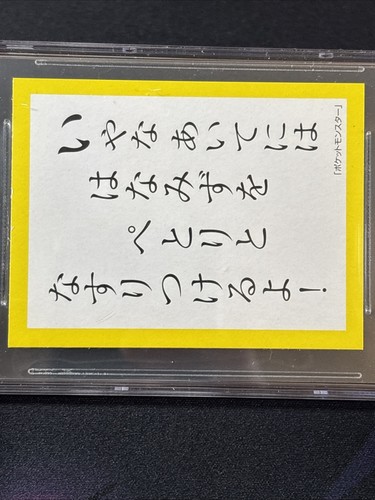 いやなあいてには
はなみずを
ぺとりと
なすりつけるよ！
「ポケットモンスター」